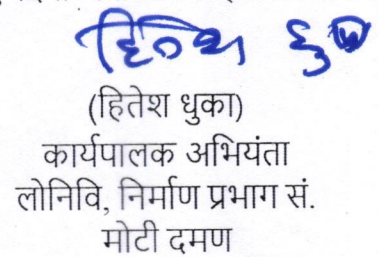 हितेश धुका
(हितेश धुका)
कार्यपालक अभियंता
लोनिवि, निर्माण प्रभाग सं.
मोटी दमण